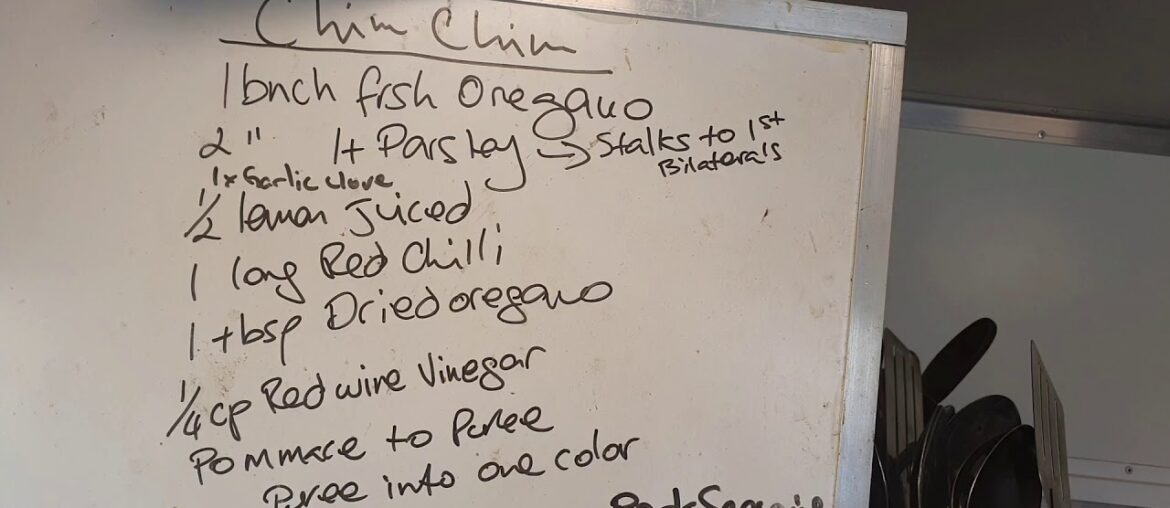 Chim Chim
1 bnch frsh Oregano
2 " 1t Parsley → Stalks to 1st
Bilaterals
1x Garlic clove
1/2 lemon juiced
1 long Red Chilli
1 tbsp Dried oregano
1/4 cp Red wine Vinegar
Pommace to Puree
Puree into one color